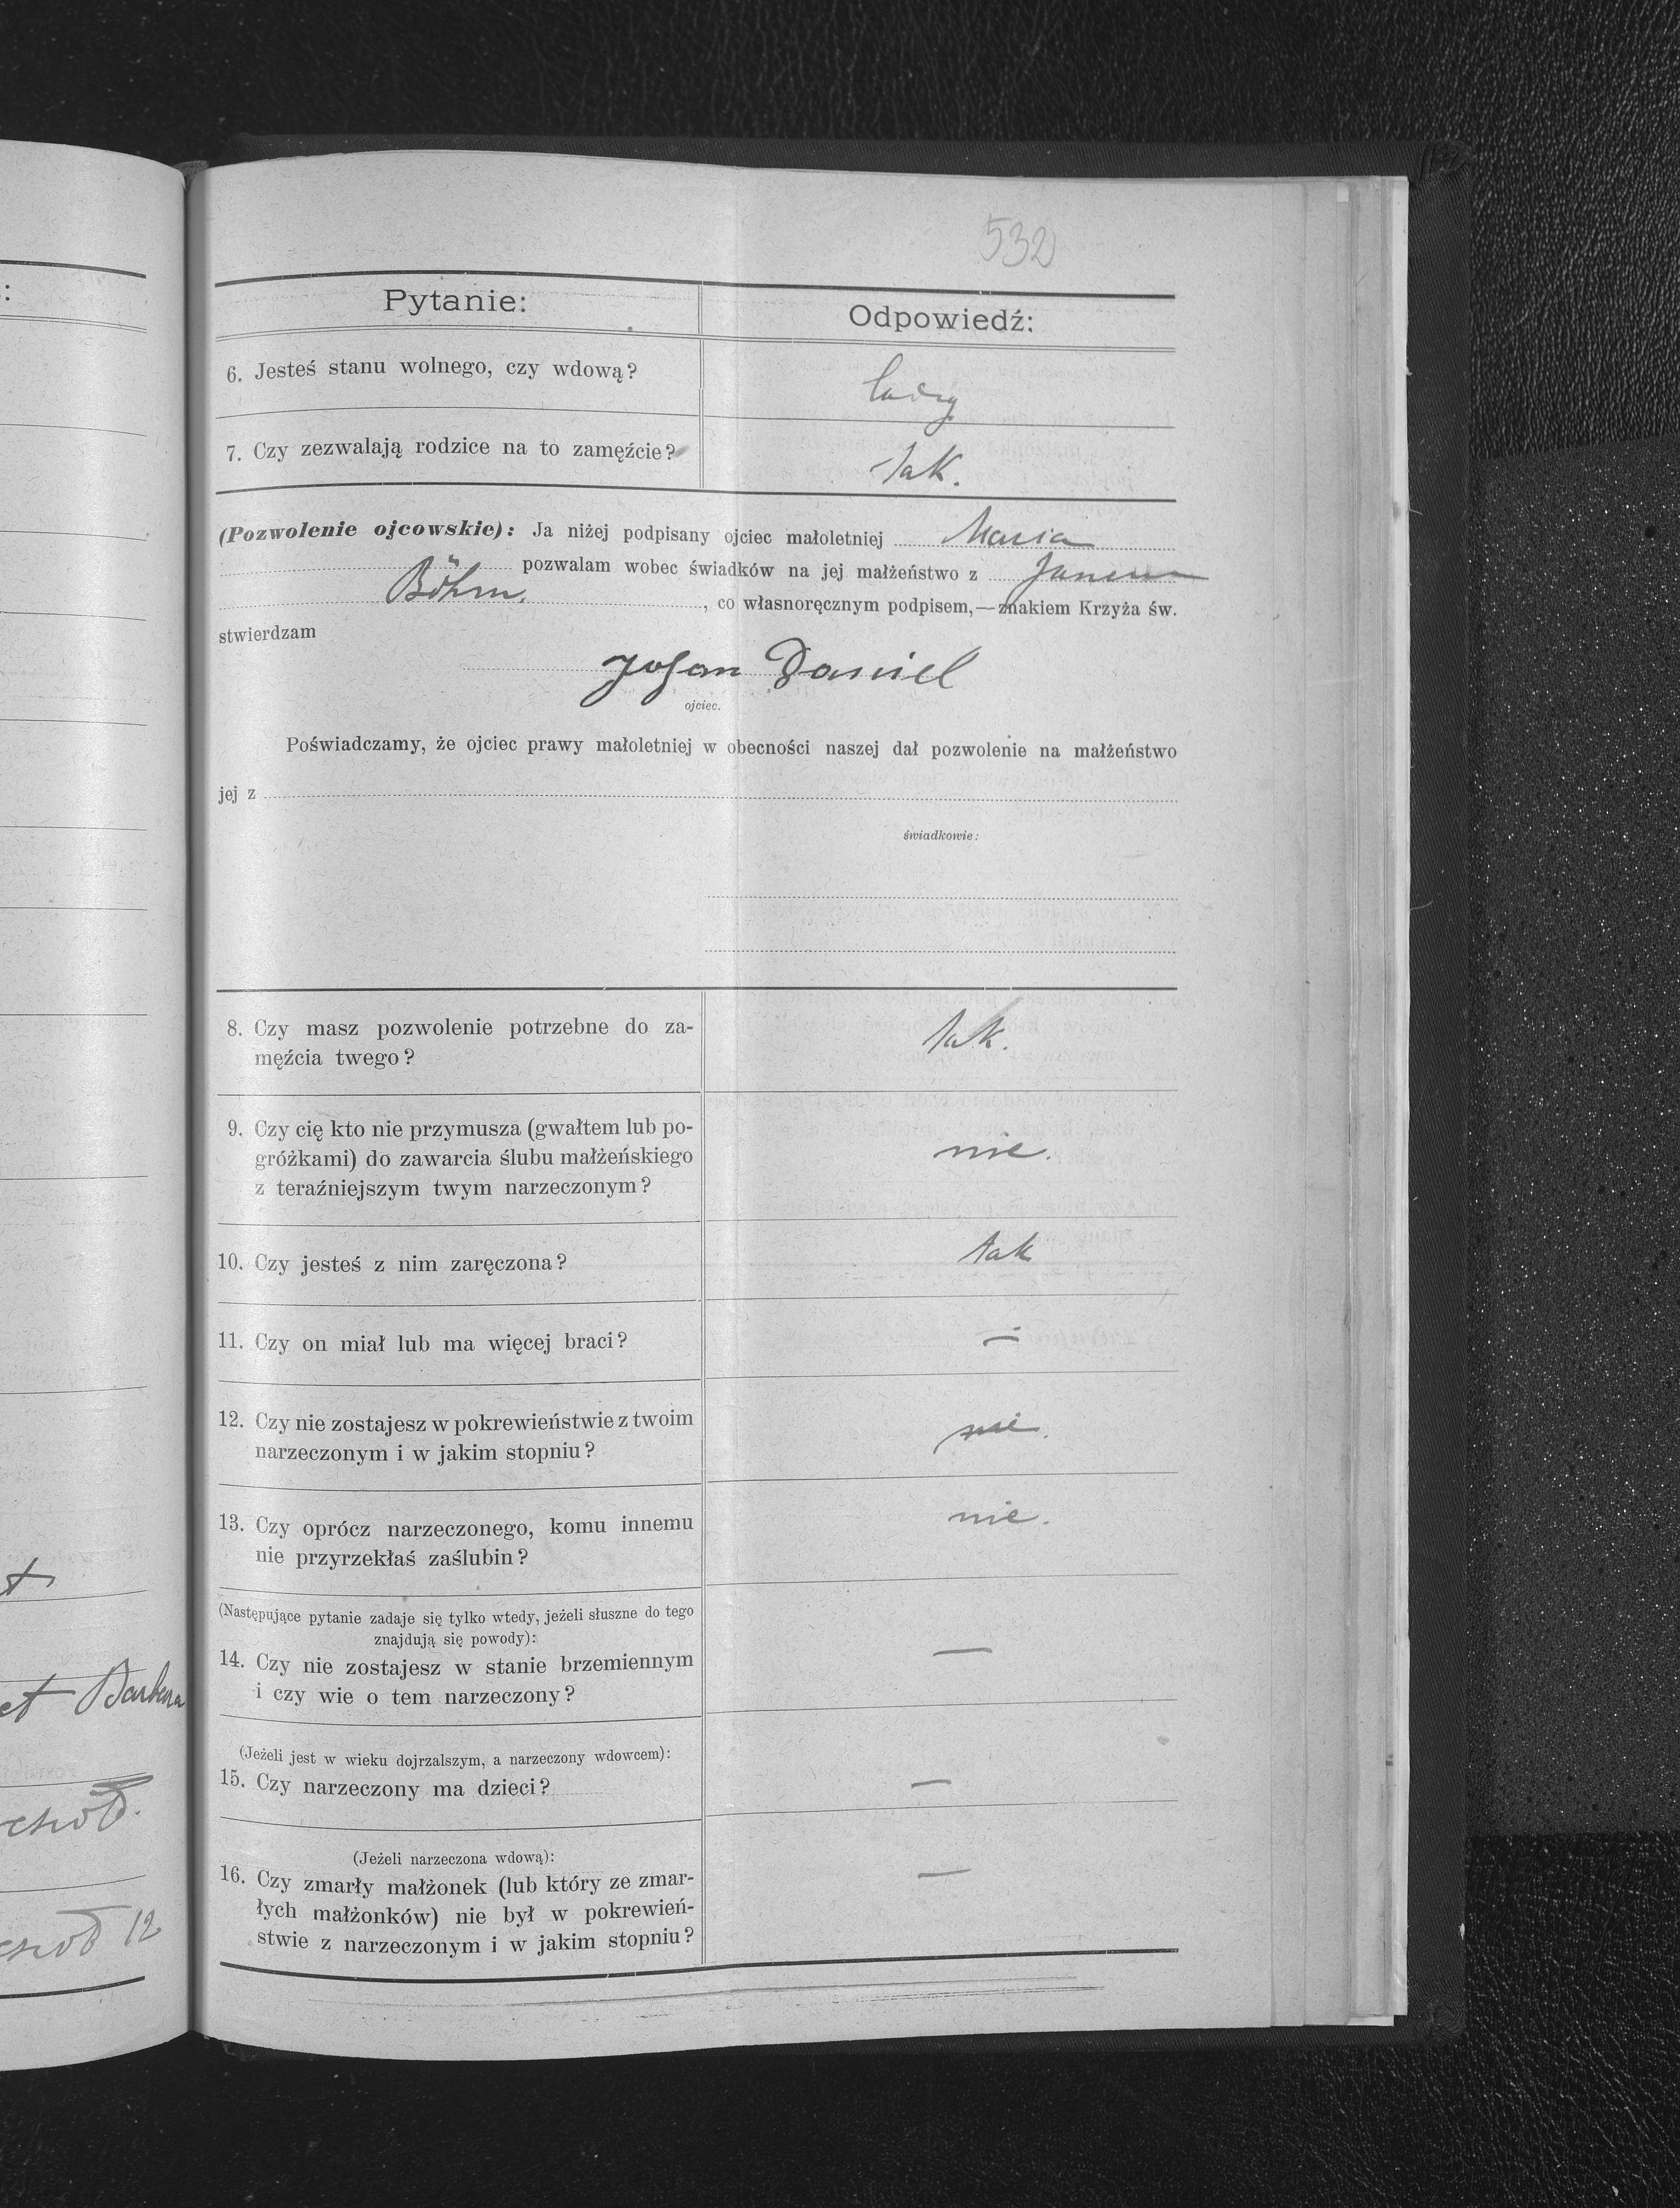 532
Pytanie:
Odpowiedź:
6. Jesteś stanu wolnego, czy wdową?
ledig
7. Czy zezwalają rodzice na to zamęźcie?
tak.
(Pozwolenie ojcowskie): Ja niżej podpisany ojciec małoletniej Maria
pozwalam wobec świadków na jej małżeństwo z Janem
Böhm, co własnoręcznym podpisem,—znakiem Krzyża św.
stwierdzam
Johan Daniel
ojciec.
Poświadczamy, że ojciec prawy małoletniej w obecności naszej dał pozwolenie na małżeństwo
jej z
świadkowie:
8. Czy masz pozwolenie potrzebne do za-
męźcia twego?
tak.
9. Czy cię kto nie przymusza (gwałtem lub po-
gróżkami) do zawarcia ślubu małżeńskiego
z teraźniejszym twym narzeczonym?
nie.
10. Czy jesteś z nim zaręczona?
tak
11. Czy on miał lub ma więcej braci?
—
12. Czy nie zostajesz w pokrewieństwie z twoim
narzeczonym i w jakim stopniu?
nie.
13. Czy oprócz narzeczonego, komu innemu
nie przyrzekłaś zaślubin?
nie.
(Następujące pytanie zadaje się tylko wtedy, jeżeli słuszne do tego
znajdują się powody):
14. Czy nie zostajesz w stanie brzemiennym
i czy wie o tem narzeczony?
—
(Jeżeli jest w wieku dojrzalszym, a narzeczony wdowcem):
15. Czy narzeczony ma dzieci?
—
(Jeżeli narzeczona wdową):
16. Czy zmarły małżonek (lub który ze zmar-
łych małżonków) nie był w pokrewień-
stwie z narzeczonym i w jakim stopniu?
—
et Barbara
12